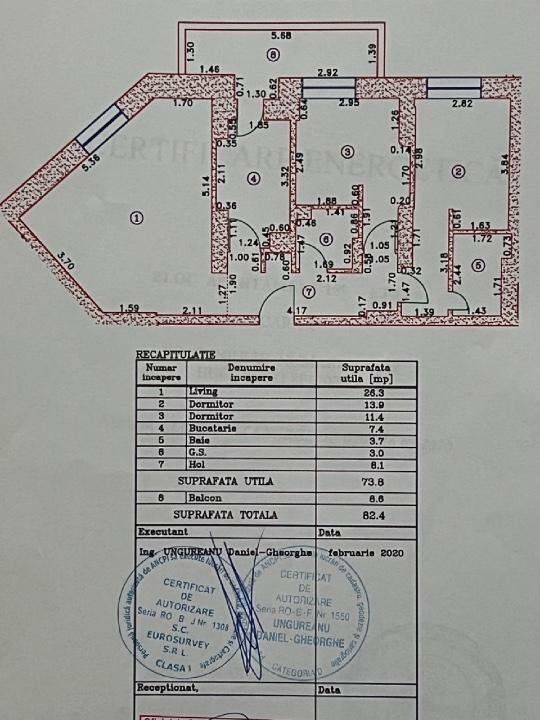 5.68
1.30
8
1.39
1.46
0.71
1.30
0.62
2.92
1.70
0.55
1.85
0.64
2.95
2.82
5.36
0.35
1.26
0.14
2.11
5.14
4
3.32
2.49
3
1.70
2.98
2
3.84
0.36
1.88
0.60
0.20
1
1.11
1.41
0.46
0.86
1.91
0.61
1.63
1.24
0.45
0.60
1.47
6
0.92
1.05
1.71
1.72
0.73
3.70
1.00
0.61
0.78
0.60
1.69
2.12
1.05
0.32
3.18
2.44
5
1.71
1.90
1.27
7
1.70
1.47
1.59
2.11
4.17
0.17
0.91
1.39
1.43
RECAPITULATIE
Numar incapere Denumire incapere Suprafata utila [mp]
1 Living 26.3
2 Dormitor 13.9
3 Dormitor 11.4
4 Bucatarie 7.4
5 Baie 3.7
6 G.S. 3.0
7 Hol 8.1
SUPRAFATA UTILA 73.8
8 Balcon 8.6
SUPRAFATA TOTALA 82.4
Executant Data
Ing. UNGUREANU Daniel-Gheorghe februarie 2020
CERTIFICAT
DE
AUTORIZARE
Seria RO B J Nr. 1308
S.C.
EUROSURVEY
S.R.L
CLASA I
CERTIFICAT
DE
AUTORIZARE
Seria RO-B-F Nr 1550
UNGUREANU
DANIEL-GHEORGHE
CATEGORIA D
Receptionat, Data